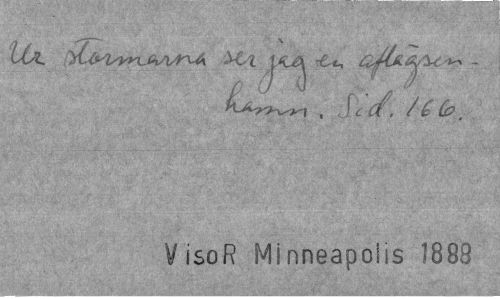 Ur stormarna ser jag en aflägsen
hamn. Sid. 166.
VisoR Minneapolis 1888